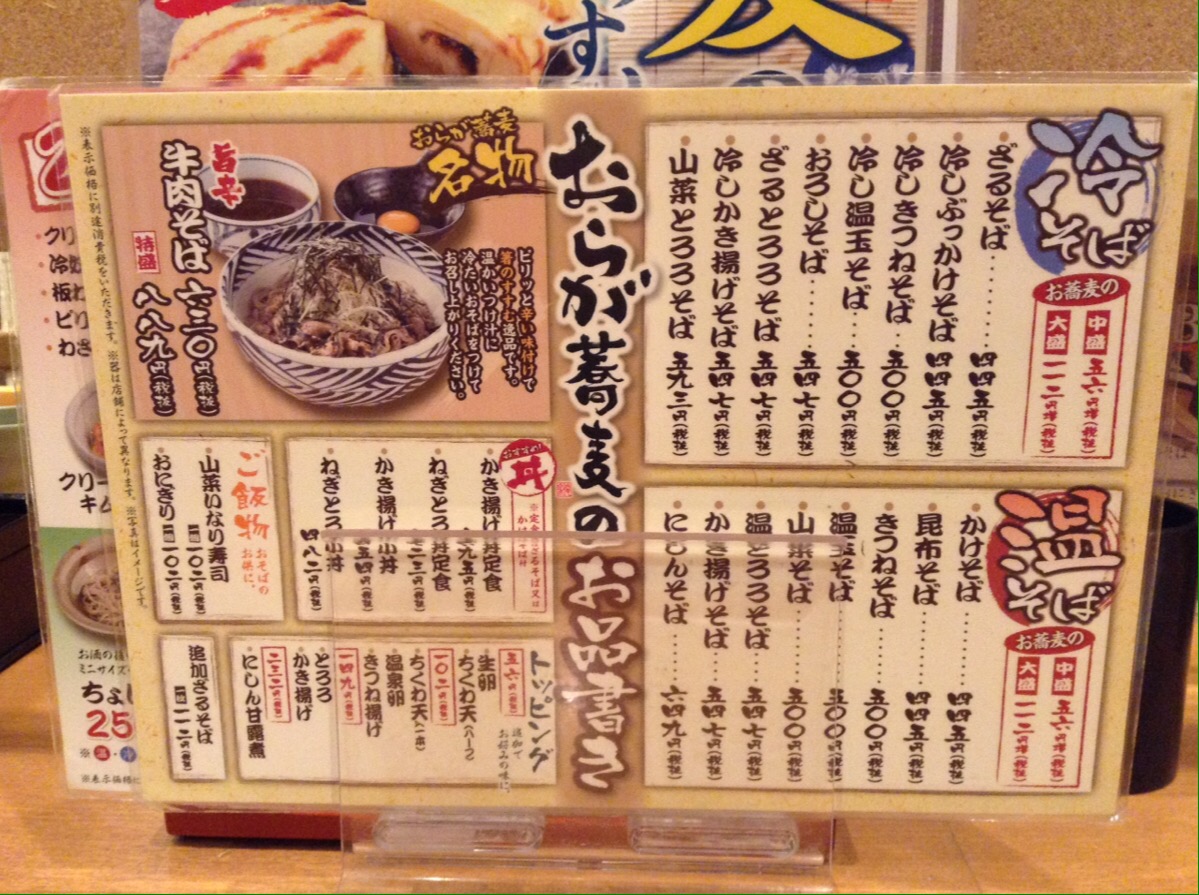 おらが蕎麦のお品書き
冷そば
お蕎麦の
中盛 五六円増(税抜)
大盛 一一二円増(税抜)
ざるそば……四四五円(税抜)
冷しぶっかけそば 四四五円(税抜)
冷しきつねそば…五〇〇円(税抜)
冷し温玉そば……五〇〇円(税抜)
おろしそば……五四七円(税抜)
ざるとろろそば 五四七円(税抜)
冷しかき揚げそば 五四七円(税抜)
山菜とろろそば 五九三円(税抜)
温そば
お蕎麦の
中盛 五六円増(税抜)
大盛 一一二円増(税抜)
かけそば……四四五円(税抜)
昆布そば……四四五円(税抜)
きつねそば……五〇〇円(税抜)
温玉そば……五〇〇円(税抜)
山菜そば……五〇〇円(税抜)
温とろろそば…五四七円(税抜)
かき揚げそば…五四七円(税抜)
にしんそば……六四九円(税抜)
おらが蕎麦
名物
ピリッと辛い味付けで
箸のすすむ逸品です。
温かいつけ汁に
冷たいおそばをつけて
お召し上がりください。
旨辛
牛肉そば 六三〇円(税抜)
特盛 八八九円(税抜)
おすすめ!
丼
かき揚げ丼定食
ねぎとろ丼定食
かき揚げ小丼
ねぎとろ小丼
四八二円(税抜)
ご飯物
おそばの
お供に。
山菜いなり寿司
一個 一〇二円(税抜)
おにぎり 一個 一〇二円(税抜)
トッピング
追加で
お好みの味に。
五六円(税抜)
生卵
ちくわ天(ハーフ)
一〇二円(税抜)
ちくわ天(一本)
温泉卵
きつね揚げ
一四九円(税抜)
とろろ
かき揚げ
二三二円(税抜)
にしん甘露煮
追加ざるそば
一個 一一二円(税抜)
※表示価格に別途消費税をいただきます。 ※器は店舗によって異なります。 ※写真はイメージです。
クリ
冷
板わ
わさ
クリー
キム
ミニサイズ
ちょい
25
※温・冷
※表示価格に